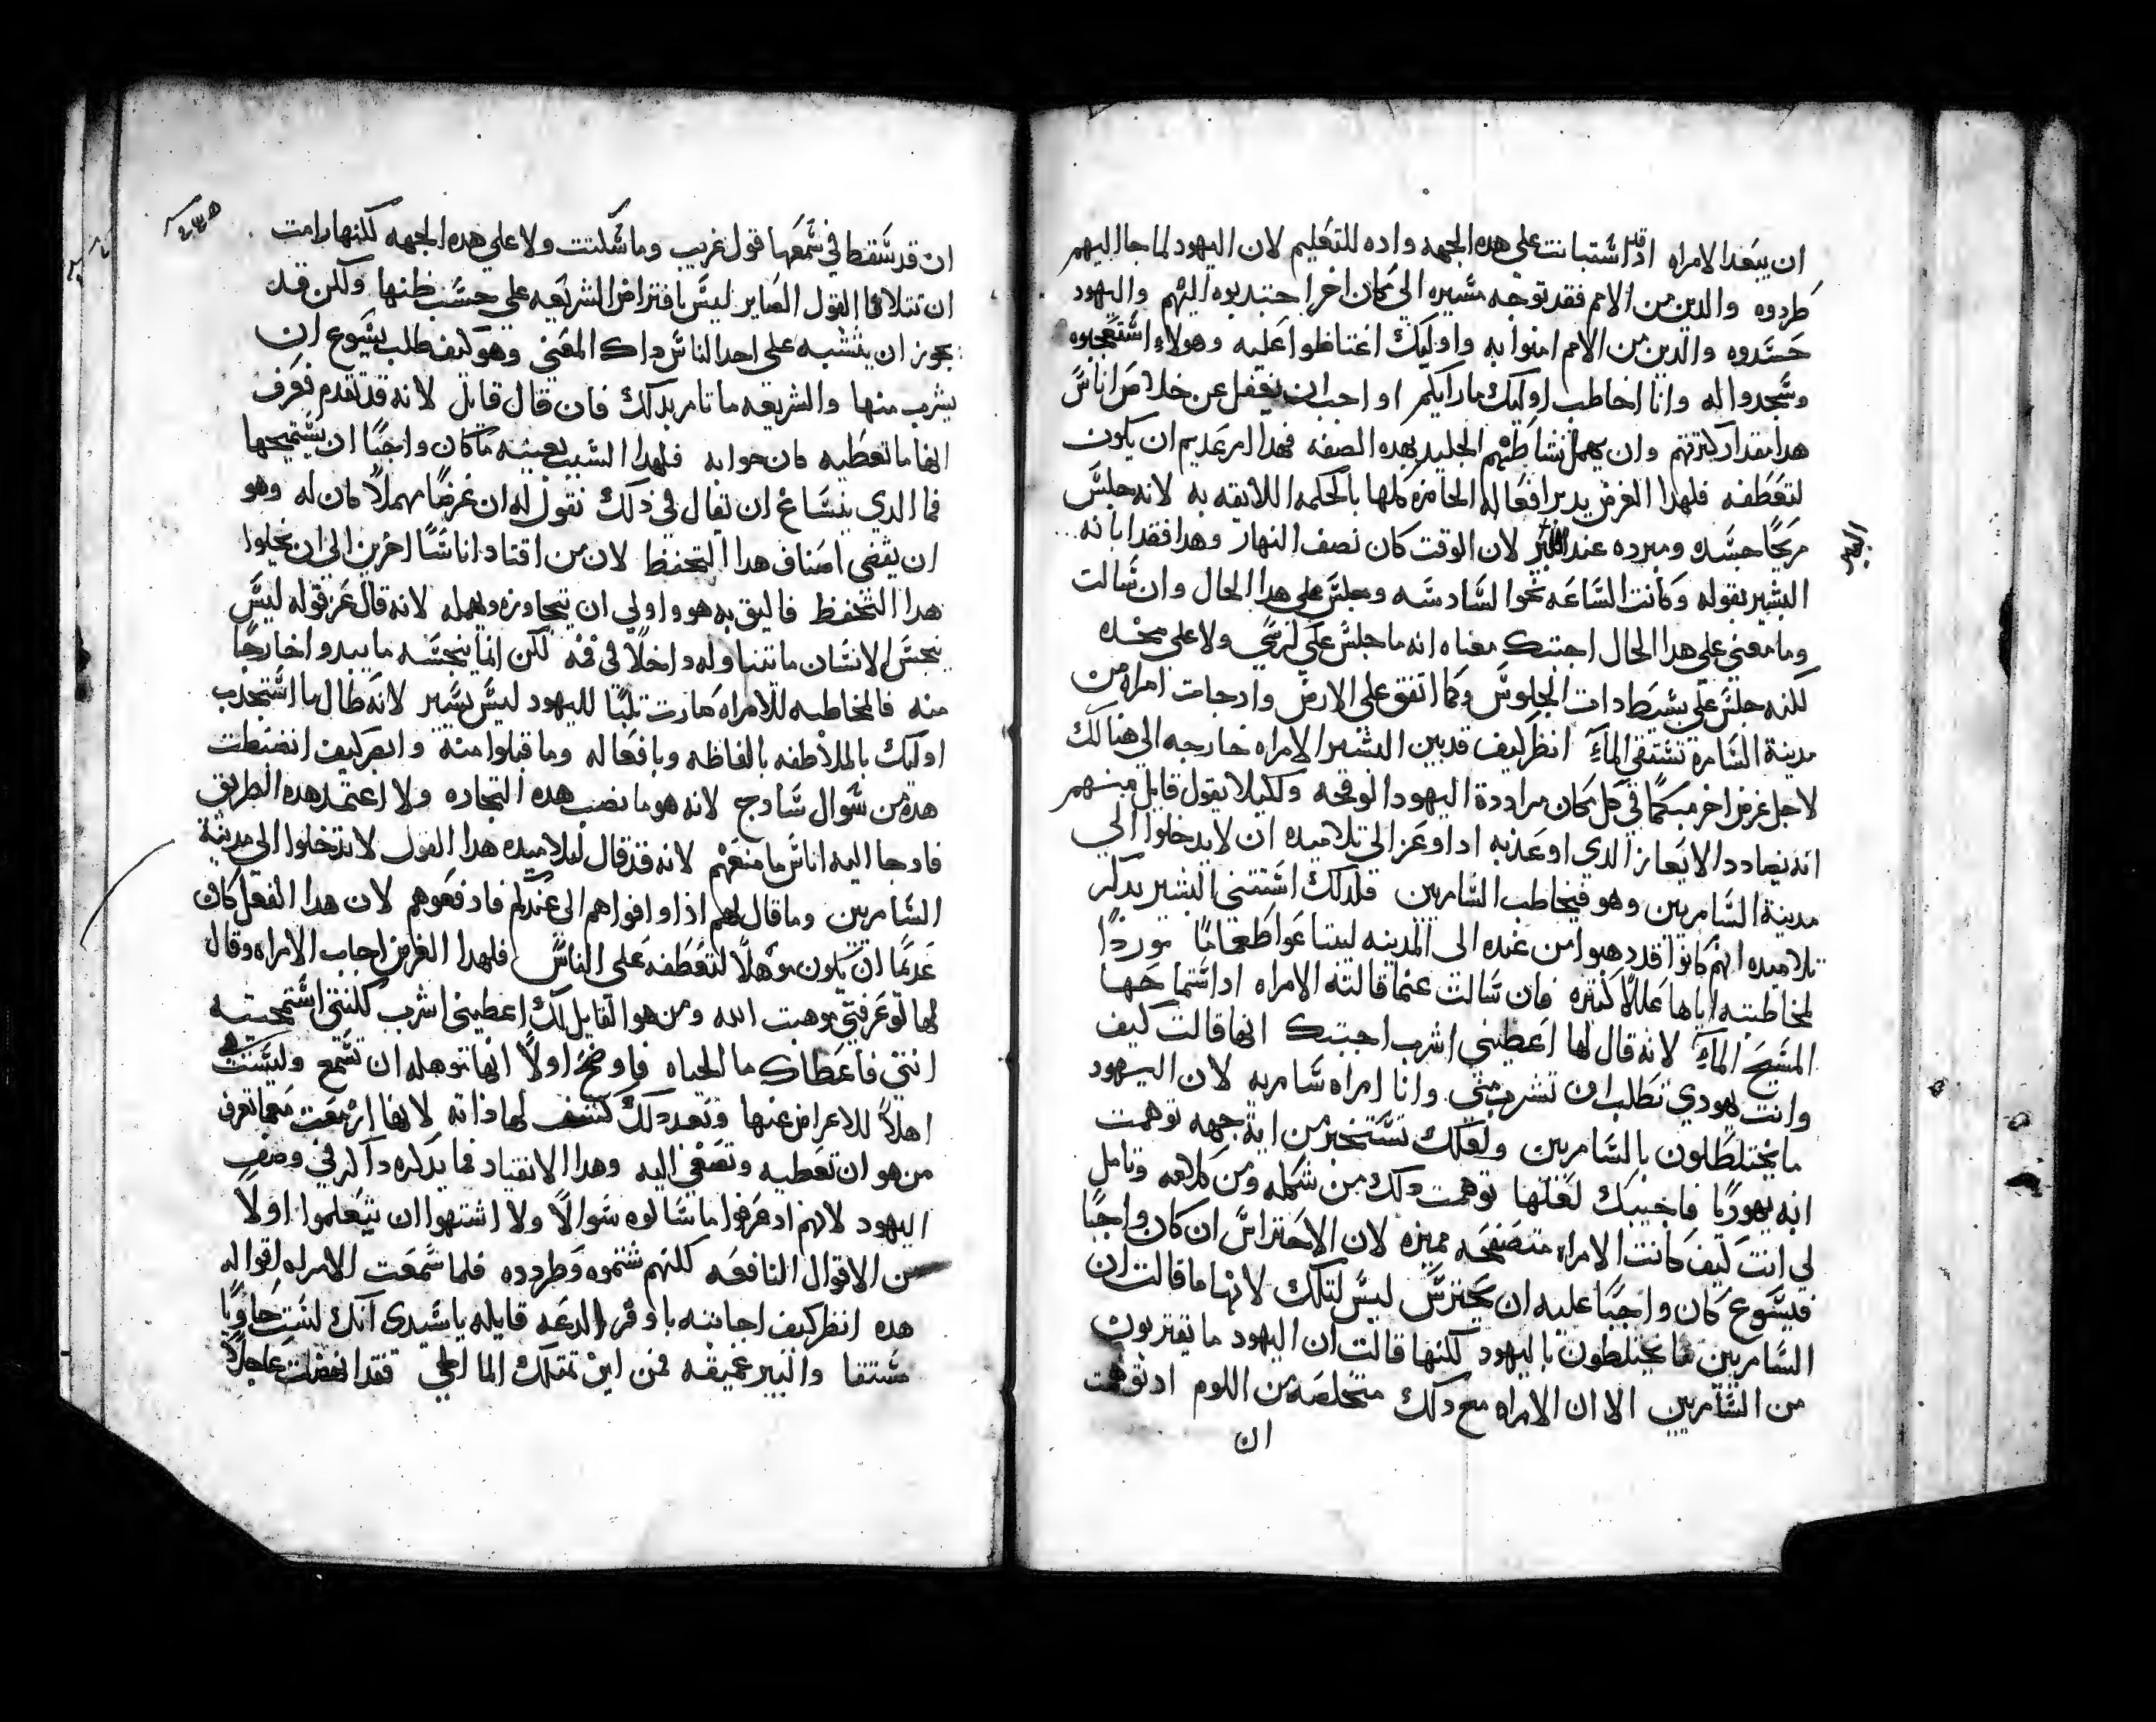 ان يبعد الامراه اذ قد اشتبانت على هذه الجهه واده للتعليم لان اليهود لما جا اليهم
طردوه والدين من الامم فقد توجه مسيره الي مكان اخر اجتدبوه اليهم واليهود
حسدوه والدين من الامم امنوا به واوليك اغتاظوا عليه وهولاء استعجبوه
وسجدوا له وانا اخاطب اوليك ما رايكم او احب ان يغفل عن خلاص اناس
هدا مقدار كثرتهم وان يهمل نشاطهم الجليد بهده الصفه فهدا امر عديم ان يكون
لتعطفه فلهدا الغرض يدبر افعاله الحامزه كلها بالحكمه اللايقه به لانه جلس
مريحا جسده ومبرده عند البير لان الوقت كان نصف النهار وهدا فقد ابانه
البير
البشير بقوله وكانت الساعه نحو السادسه وجلس على هدا الحال وان سالت
وما معني على هدا الحال اجبتك معناه انه ما جلس على كرسي ولا على مخده
لكنه جلس على بسيط دات الجلوس وكما اتفق على الارض واد جات امراه من
مدينة السامرة تستقي الماء انظر كيف قد بين البشير الامراه خارجه الي هنالك
لاجل غرض اخر مبكما في كل مكان مراددة اليهود الوقحه ولكيلا يقول قايل منهم
انه يضادد الايعاز الدي اوعد به اد اوعز الي تلاميده ان لا يدخلوا الي
مدينة السامريين وهو فيخاطب السامريين فلدلك استثنى البشير بدكر
تلاميده انهم كانوا قد دهبوا من عنده الى المدينه ليبتاعوا طعاما موردا
لمخاطبته اياها عللا كثيره فان سالت عما قالته الامراه اد استماحها
المسيح الماء لانه قال لها اعطيني اشرب اجبتك انها قالت كيف
وانت يهودي تطلب ان تشرب مني وانا امراه سامريه لان اليهود
ما يختلطون بالسامريين ولعلك تستخبر من اية جهه توهمت
انه يهوديا فاجيبك لعلها توهمت دلك من شكله ومن كلامه وتامل
لي انت كيف كانت الامراه متصفحه مميزه لان الاحتراس ان كان واجبا
فيسوع كان واجبا عليه ان يحترس ليس لتلك لانها ما قالت ان
السامريين ما يختلطون باليهود لكنها قالت ان اليهود ما يقتربون
من السامريين الا ان الامراه مع دلك متخلصه من اللوم اد توهمت
ان
ان قد سقط في سمعها قول غريب وما سكتت ولا على هده الجهه لكنها رامت
ان تتلافا القول الصاير ليس بافتراض الشريعه على حسب ظنها ولكن قد
يجوز ان يشتبه على احد الناس داك المعني وهو كيف طلب يسوع ان
يشرب منها والشريعه ما تامر بدلك فان قال قايل لانه قد تقدم فعرف
انها ما تعطيه كان جوابه فلهدا السبب بعينه ما كان واجبا ان يستميحها
فما الدي ينساغ ان يقال في دلك نقول له ان غرضا مهملا كان له وهو
ان يقصي اصناف هدا التحفظ لان من اقتاد اناسا اخرين الي ان يحلوا
هدا التحفظ فاليق به هو واولي ان يتجاوزه ويهمله لانه قال عز قوله ليس
ينجس الانسان ما يتناوله داخلا في فمه لكن انما ينجسه ما يبدوا خارجا
منه فالمخاطبه للامراه صارت ثلبا لليهود ليس يسير لانه طال ما استجدب
اوليك بالملاطفه بالفاظه وبافعاله وما قبلوا منه وابصر كيف انضبطت
هده من سوال سادج لانه هو ما نصب هده التجاره ولا اعتمد هده الطريق
فاد جا اليه اناس ما منعهم لانه قد قال لتلاميده هدا القول لا تدخلوا الي مدينة
السامريين وما قال لهم اذا وافواهم الى عندكم فادفعوهم لان هدا الفعل كان
عديما ان يكون موهلا لتعطفه على الناس فلهدا الغرض اجاب الامراه وقال
لها لو عرفتي موهبت الله ومن هو القايل لك اعطيني اشرب لكنتي استمحيته
انتي فاعطاك ما الحياه فاوضح اولا انها توهله ان تسمع وليست
اهلا للاعراض عنها وبعد دلك كشف لها ذاته لانها ازمعت معما تعرف
من هو ان تعطيه وتصغي اليه وهدا الانقياد فما يدكره داكر في وصف
اليهود لانهم اد عرفوا ما سالوه سوالا ولا اشتهوا ان يتعلموا اولا
من الاقوال النافعه لكنهم شتموه وطردوه فلما سمعت الامراه اقواله
هده انظر كيف اجابته باوفر الدعه قايله يا سيدى انك لست حاويا
مستقا والبير عميقه فمن اين تمتلك الما الحي فقد انهضت عاجلا